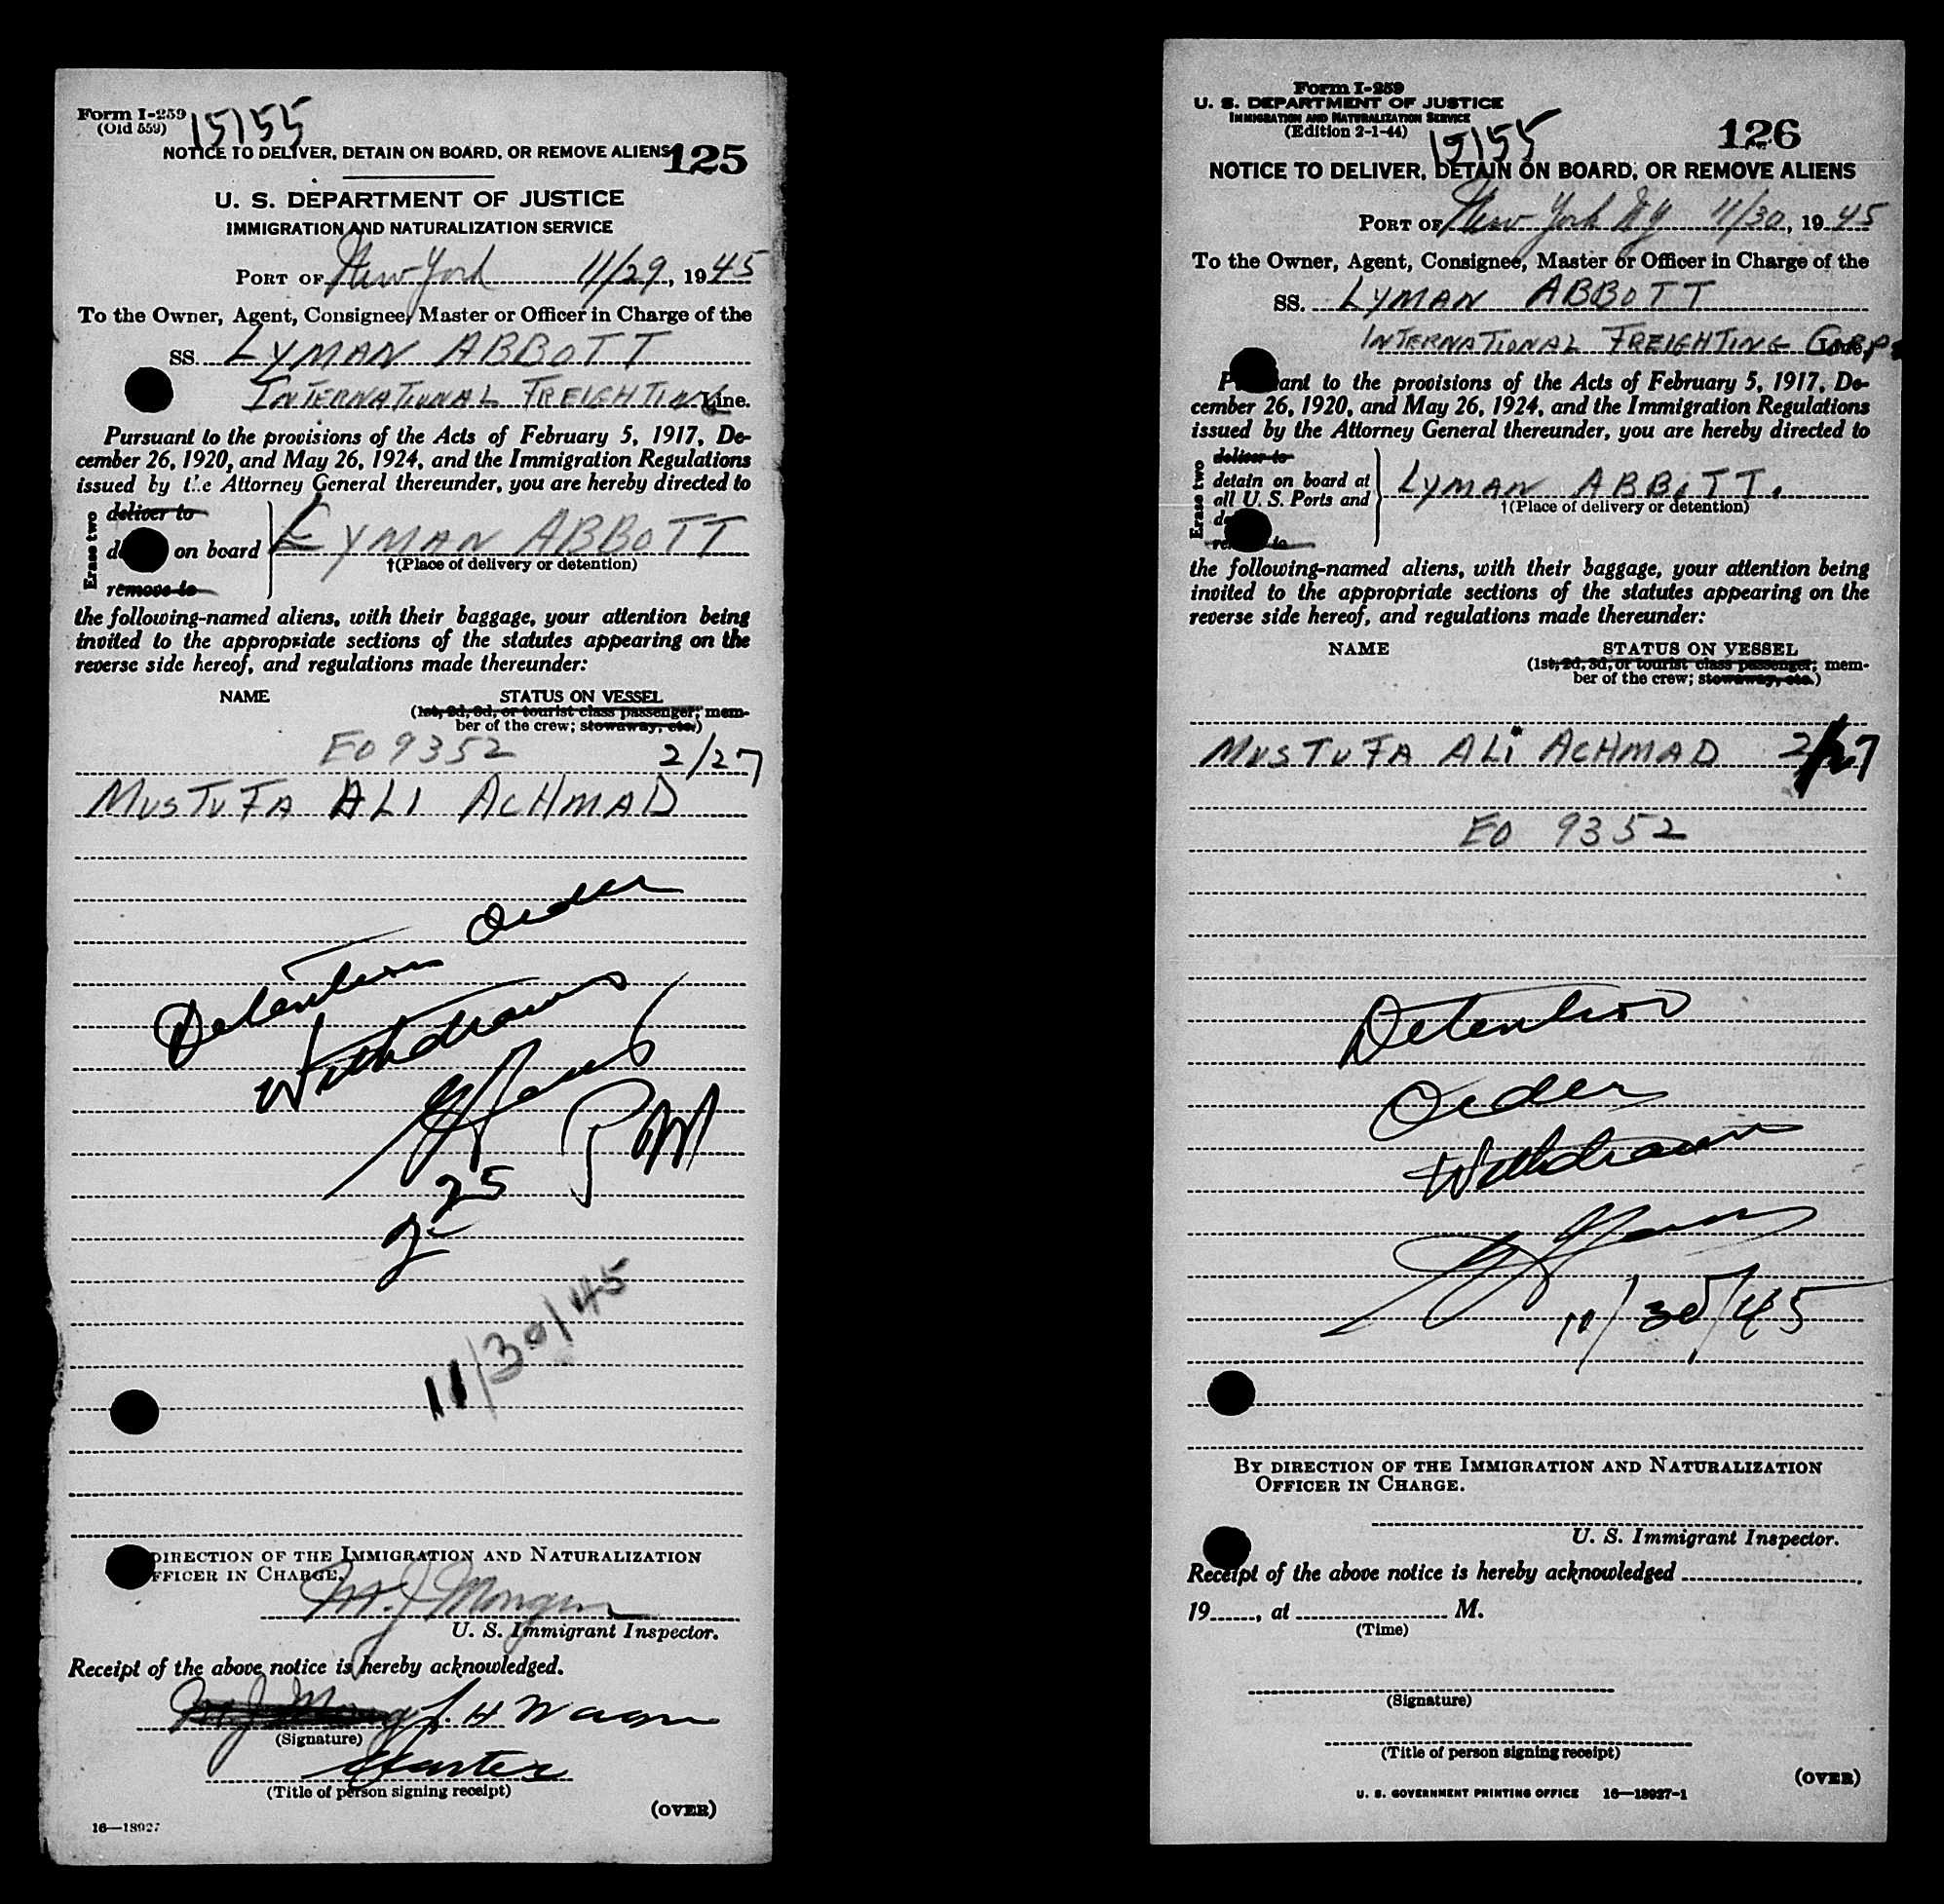 Form I-259
(Old 559)
15155
NOTICE TO DELIVER, DETAIN ON BOARD, OR REMOVE ALIENS
125
U. S. DEPARTMENT OF JUSTICE
IMMIGRATION AND NATURALIZATION SERVICE
PORT OF New York 11/29, 1945
To the Owner, Agent, Consignee, Master or Officer in Charge of the
SS. LYMAN ABBOTT
INTERNATIONAL FREIGHTING Line.
Pursuant to the provisions of the Acts of February 5, 1917, De-
cember 26, 1920, and May 26, 1924, and the Immigration Regulations
issued by the Attorney General thereunder, you are hereby directed to
Erase two
deliver to
on board
remove to
LYMAN ABBOTT
†(Place of delivery or detention)
the following-named aliens, with their baggage, your attention being
invited to the appropriate sections of the statutes appearing on the
reverse side hereof, and regulations made thereunder:
NAME STATUS ON VESSEL
(1st, 2d, 3d, or tourist class passenger; mem-
ber of the crew; stowaway, etc.)
EO 9352 2/27
MUSTUFA ALI ACHMAD
Detention Order
Withdrawn
225 PM
11/30/45
DIRECTION OF THE IMMIGRATION AND NATURALIZATION
FFICER IN CHARGE.
M. J.
U. S. Immigrant Inspector.
Receipt of the above notice is hereby acknowledged.
H
(Signature)
Master
(Title of person signing receipt)
(OVER)
16—18927
Form I-259
U. S. DEPARTMENT OF JUSTICE
IMMIGRATION AND NATURALIZATION SERVICE
(Edition 2-1-44)
15155
126
NOTICE TO DELIVER, DETAIN ON BOARD, OR REMOVE ALIENS
PORT OF New York NY 11/30, 1945
To the Owner, Agent, Consignee, Master or Officer in Charge of the
SS. LYMAN ABBOTT
INTERNATIONAL FREIGHTING CORP. Line,
ant to the provisions of the Acts of February 5, 1917, De-
cember 26, 1920, and May 26, 1924, and the Immigration Regulations
issued by the Attorney General thereunder, you are hereby directed to
Erase two
deliver to
detain on board at
all U. S. Ports and
to
LYMAN ABBOTT.
†(Place of delivery or detention)
the following-named aliens, with their baggage, your attention being
invited to the appropriate sections of the statutes appearing on the
reverse side hereof, and regulations made thereunder:
NAME STATUS ON VESSEL
(1st, 2d, 3d, or tourist class passenger; mem-
ber of the crew; stowaway, etc.)
MUSTUFA ALI ACHMAD 2/27
EO 9352
Detention
Order
Withdrawn
11/30/45
BY DIRECTION OF THE IMMIGRATION AND NATURALIZATION
OFFICER IN CHARGE.
U. S. Immigrant Inspector.
Receipt of the above notice is hereby acknowledged
19, at M.
(Time)
(Signature)
(Title of person signing receipt)
(OVER)
U. S. GOVERNMENT PRINTING OFFICE 16—18927-1